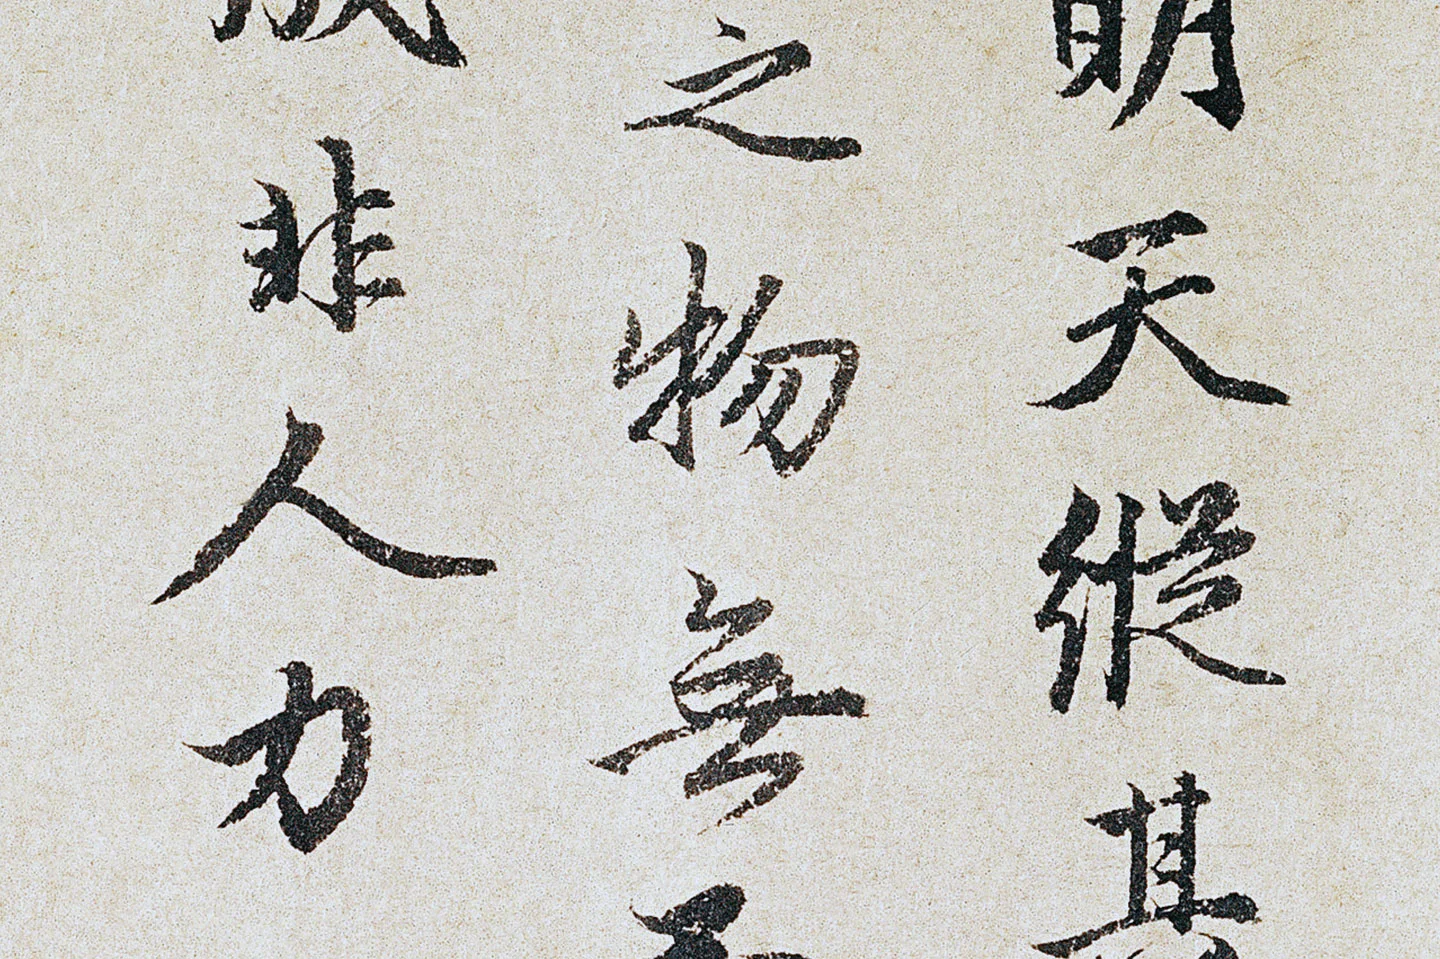 明天縱其
之物無
成非人力